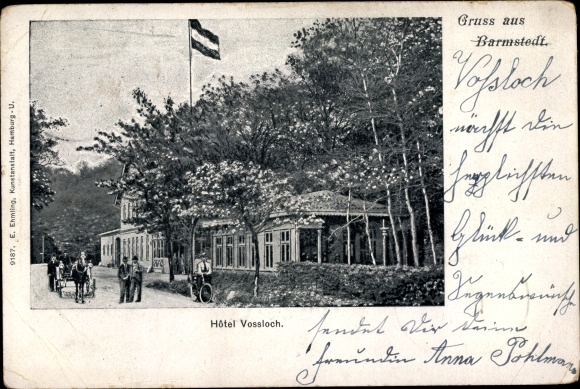 Gruss aus
Barmstedt.
Vossloch
nächst die
herzlichsten
Glück- und
Segenswünsche
sendet Dir Deine
Freundin Anna Pohlmann
Hôtel Vossloch.
9187. E. Ehmling, Kunstanstalt, Hamburg-U.